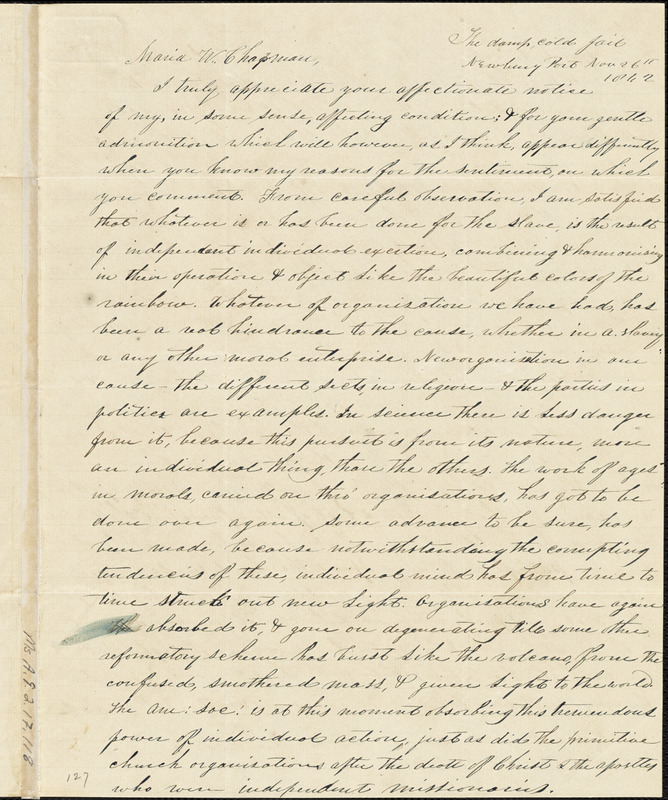 The damp, cold jail
Newbury Port Nov 26th
1842
Maria W. Chapman,
I truly appreciate your affectionate notice
of my, in some sense, affecting condition; & for your gentle
admonition which will however, as I think, appear differently
when you know my reasons for the sentiment, on which
you comment. From careful observation, I am satisfied
that whatever is or has been done for the slave, is the result
of independant individual exertion, combining & harmonising
in their operation & object like the beautiful colors of the
rainbow. Whatever of organisation we have had, has
been a real hindrance to the cause, whether in a. slavery
or any other moral enterprise. Neworganisation in our
cause - the different sects, in religion - & the parties in
politics are examples. In science there is less danger
from it, because this pursuit is from its nature, more
an individual thing, than the others. The work of ages
in morals, carried on thro' organisations, has got to be
done over again. Some advance to be sure, has
been made, because notwithstanding the corrupting
tendencies of these, individual mind has from time to
time struck out new light. Organisations have again
absorbed it, & gone on degenerating till some other
reformatory scheme has burst like the volcano, from the
confused, smothered mass, & given light to the world.
The Am: Soc: is at this moment absorbing this tremendous
power of individual action, just as did the primitive
church organisations after the death of Christ & the apostles
who were independent missionaries.
Ms.A.9.2.17.118
127